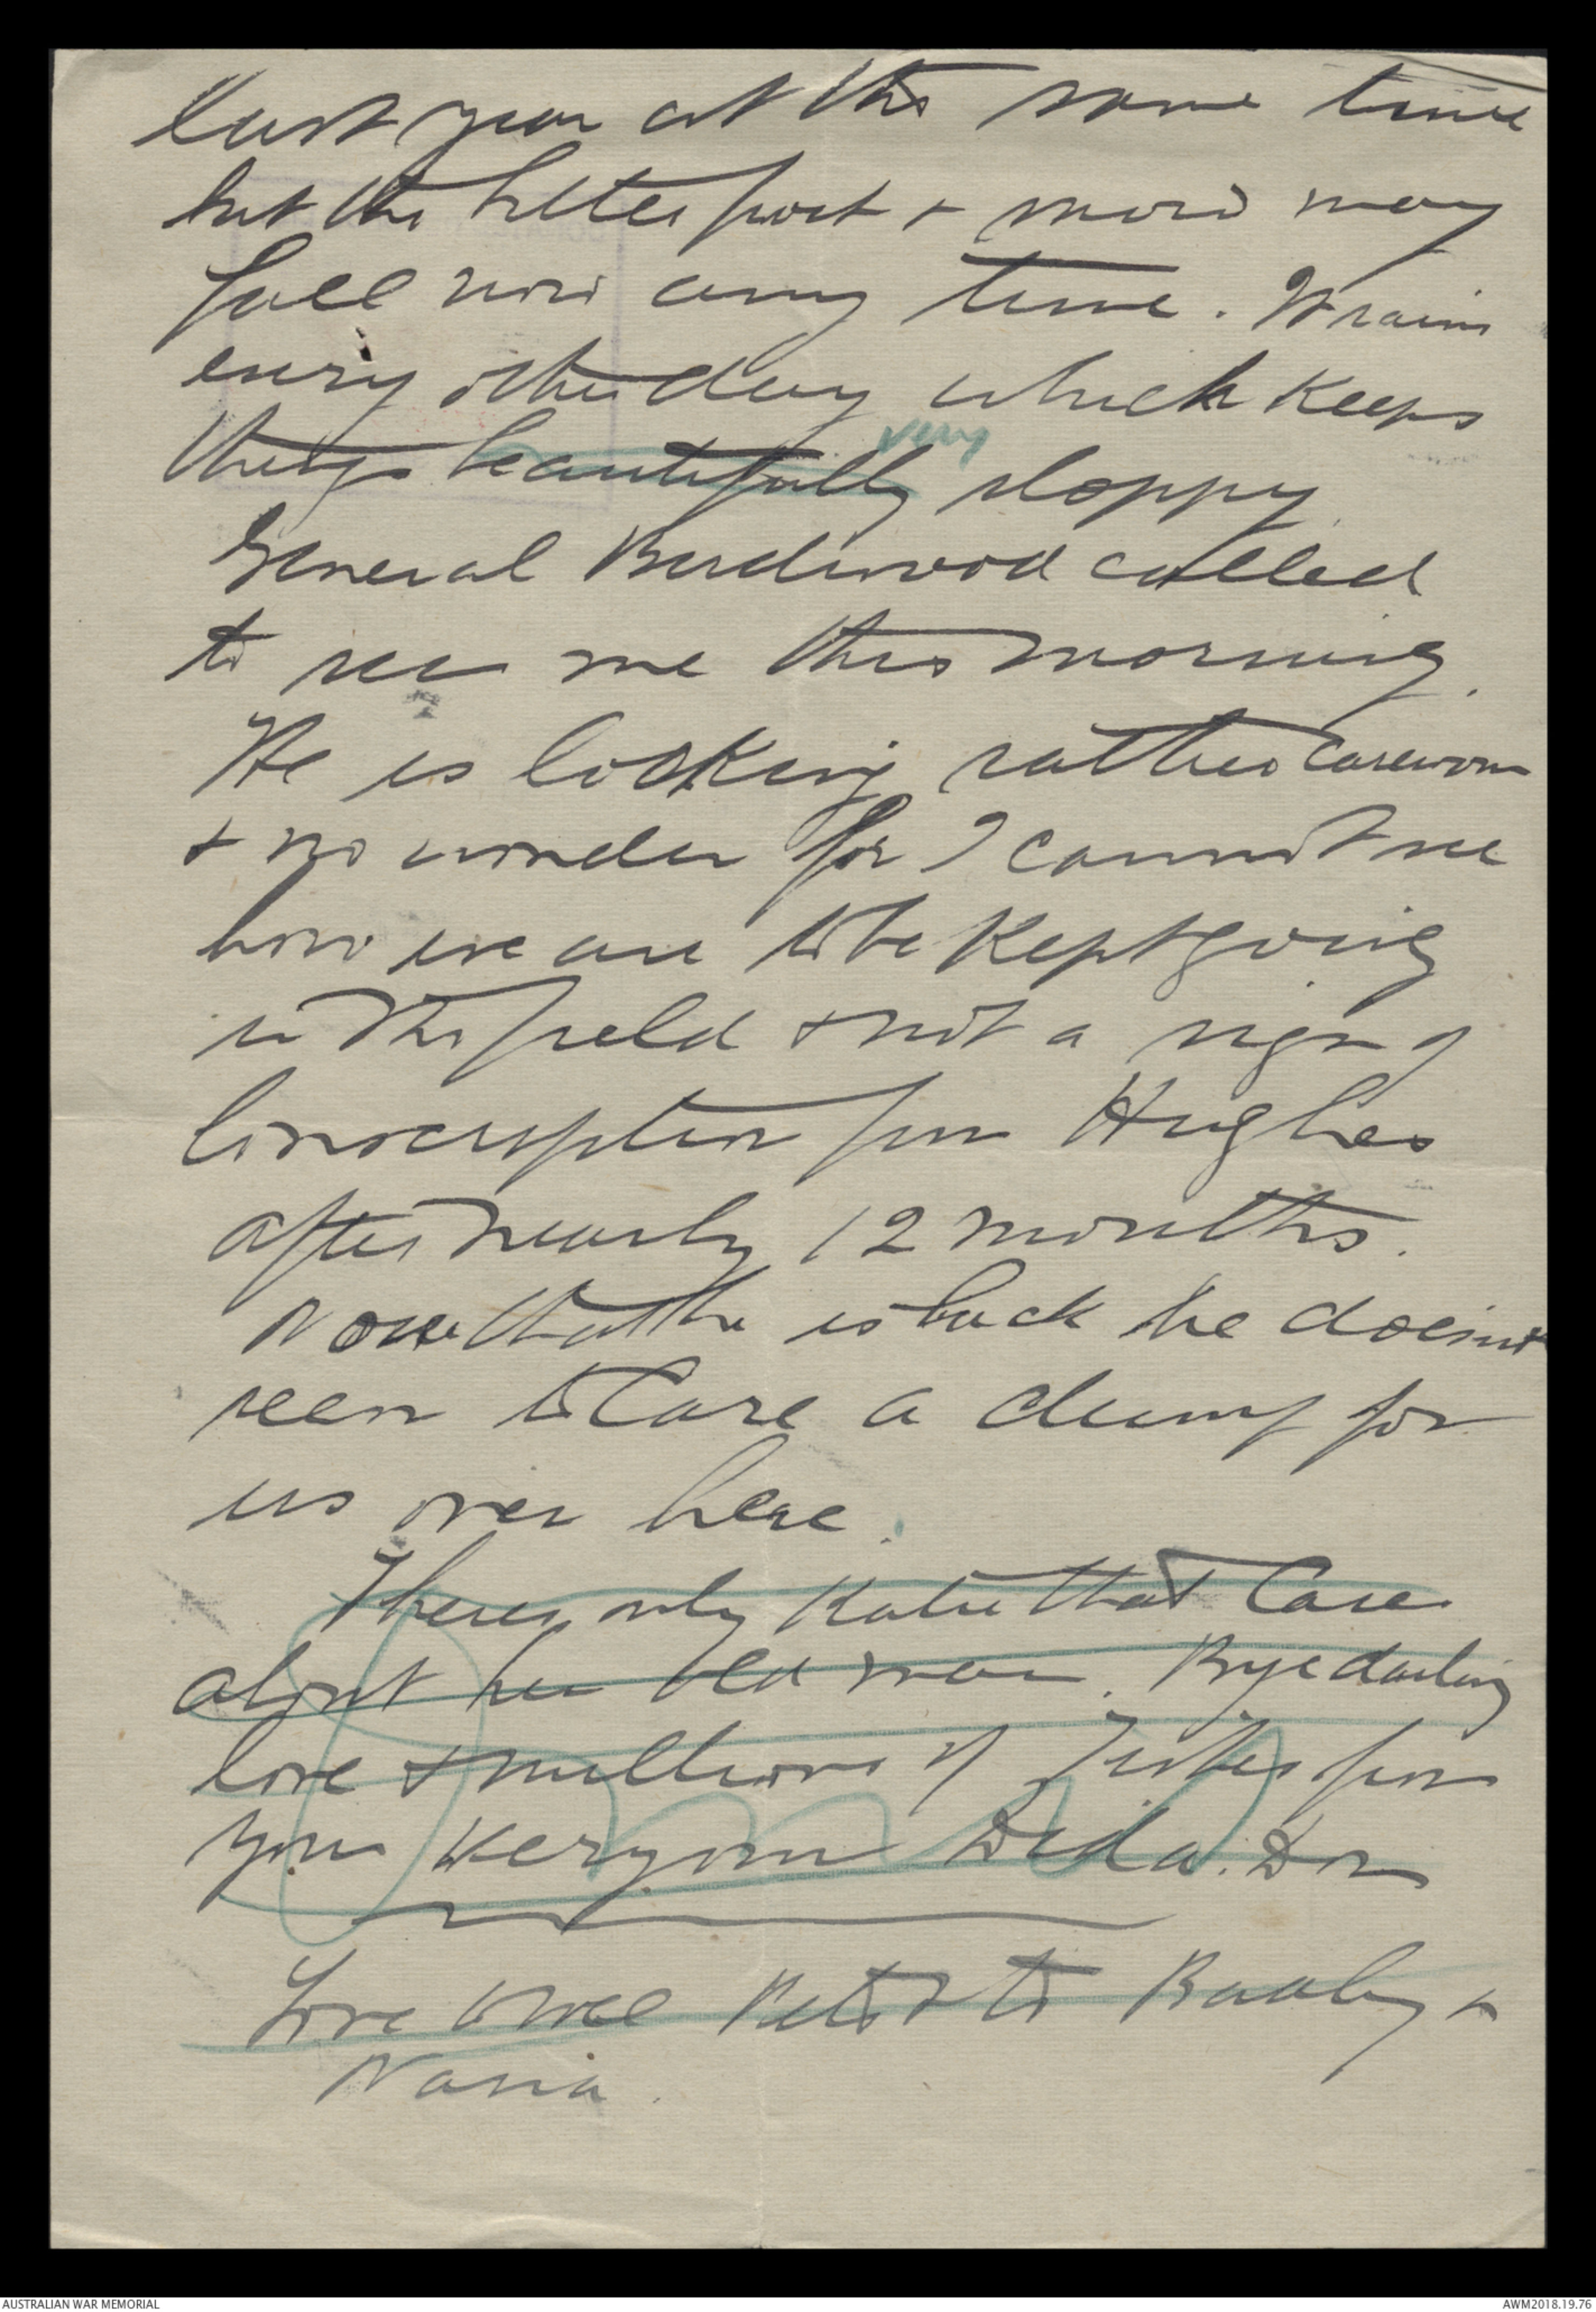 last year at the same time
but the bitter frost & snow may
fall now any time. It rains
every other day which keeps
things beautifully very sloppy.
General Birdwood called
to see me this morning.
He is looking rather careworn
& no wonder for I cannot see
how we are to be kept going
in the field & not a sign of
Conscription from Hughes
after nearly 12 months.
Now that he is back he doesn't
seem to care a dump for
us over here.
Theres only Katie that Cares
about her old man. Bye darling
love & millions of Tisses from
your Dida. Don
Love to all Pets & to Baaby &
Nana.
AUSTRALIAN WAR MEMORIAL
AWM2018.19.76